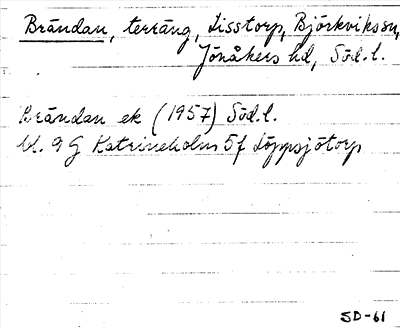 Brändan, terräng, Lisstorp, Björkviks sn,
Jönåkers hd, Söd.l.
Brändan ek (1957) Söd.l.
bl. 9 G Katrineholm 5f Löppsjötorp
SD-61